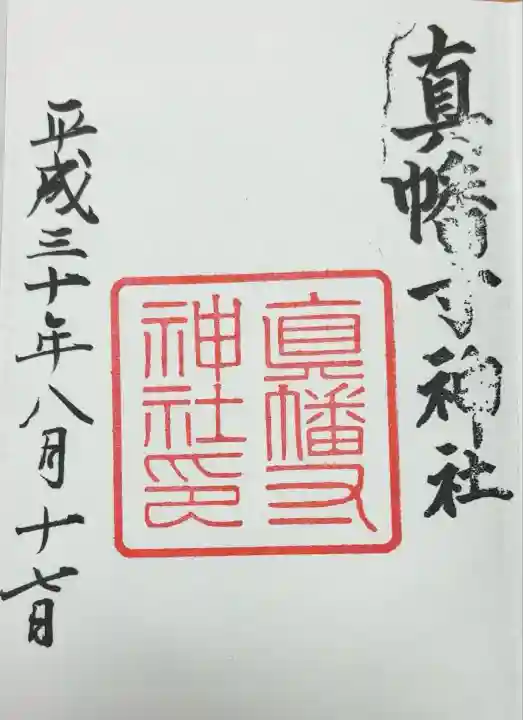 真幡寸神社
眞幡寸
神社印
平成三十年八月十七日